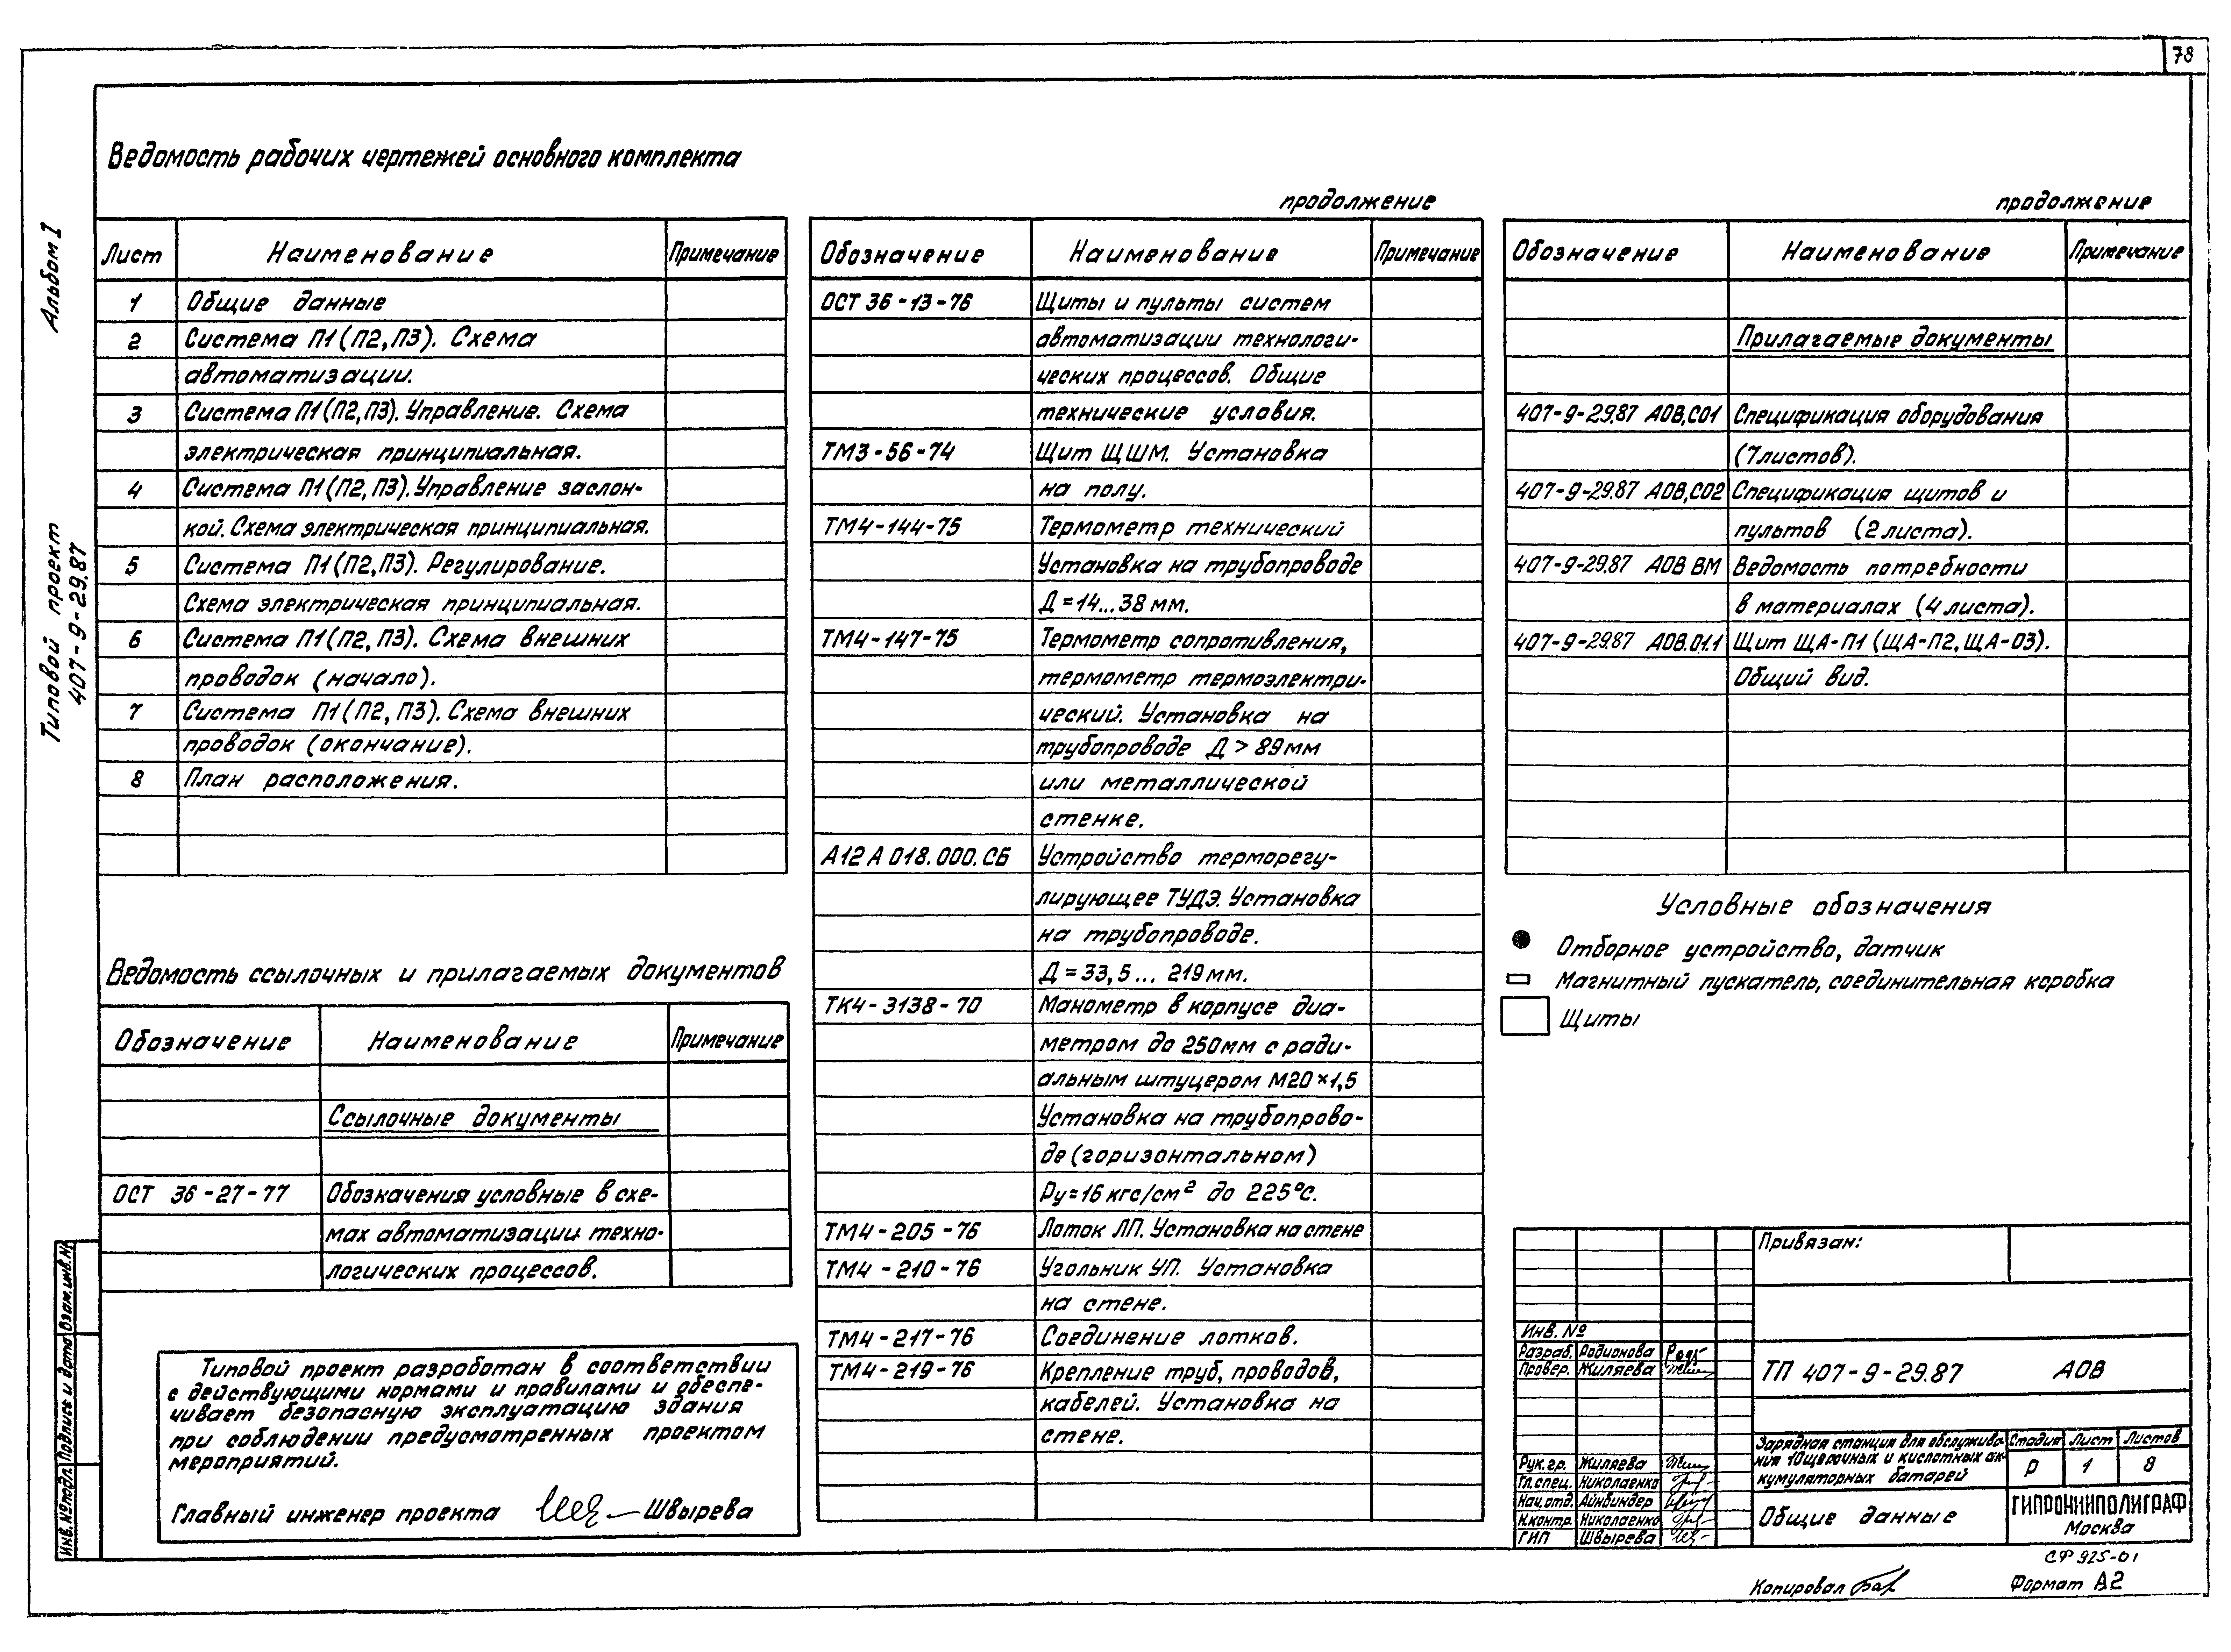 78
Альбом I
Типовой проект
407-9-29.87
Ведомость рабочих чертежей основного комплекта
Лист Наименование Примечание
1 Общие данные
2 Система П1(П2,П3). Схема
автоматизации.
3 Система П1(П2,П3). Управление. Схема
электрическая принципиальная.
4 Система П1(П2,П3). Управление заслон-
кой. Схема электрическая принципиальная.
5 Система П1(П2,П3). Регулирование.
Схема электрическая принципиальная.
6 Система П1(П2,П3). Схема внешних
проводок (начало).
7 Система П1(П2,П3). Схема внешних
проводок (окончание).
8 План расположения.
Ведомость ссылочных и прилагаемых документов
Обозначение Наименование Примечание
Ссылочные документы
ОСТ 36-27-77 Обозначения условные в схе-
мах автоматизации техно-
логических процессов.
Типовой проект разработан в соответствии
с действующими нормами и правилами и обеспе-
чивает безопасную эксплуатацию здания
при соблюдении предусмотренных проектом
мероприятий.
Главный инженер проекта Швырева
продолжение
Обозначение Наименование Примечание
ОСТ 36-13-76 Щиты и пульты систем
автоматизации технологи-
ческих процессов. Общие
технические условия.
ТМ3-56-74 Щит ЩШМ. Установка
на полу.
ТМ4-144-75 Термометр технический
Установка на трубопроводе
Д=14...38 мм.
ТМ4-147-75 Термометр сопротивления,
термометр термоэлектри-
ческий. Установка на
трубопроводе Д > 89мм
или металлической
стенке.
А12А018.000.СБ Устройство терморегу-
лирующее ТУДЭ. Установка
на трубопроводе.
Д=33,5... 219мм.
ТК4-3138-70 Манометр в корпусе диа-
метром до 250мм с ради-
альным штуцером М20×1,5
Установка на трубопрово-
де (горизонтальном)
Ру=16 кгс/см² до 225°С.
ТМ4-205-76 Лоток ЛП. Установка на стене
ТМ4-210-76 Угольник УП. Установка
на стене.
ТМ4-217-76 Соединение лотков.
ТМ4-219-76 Крепление труб, проводов,
кабелей. Установка на
стене.
продолжение
Обозначение Наименование Примечание
Прилагаемые документы
407-9-29.87 АОВ,СО1 Спецификация оборудования
(7листов).
407-9-29.87 АОВ,СО2 Спецификация щитов и
пультов (2 листа).
407-9-29.87 АОВ ВМ Ведомость потребности
в материалах (4 листа).
407-9-29.87 АОВ.01.1 Щит ЩА-П1 (ЩА-П2, ЩА-03).
Общий вид.
Условные обозначения
Отборное устройство, датчик
Магнитный пускатель, соединительная коробка
Щиты
Привязан:
Инв. №
Разраб. Родионова
Провер. Жиляева
ТП 407-9-29.87 АОВ
Рук. гр. Жиляева
Гл. спец. Николаенко
Нач. отд. Айнбиндер
Н.контр. Николаенко
ГИП Швырева
Зарядная станция для обслужива-
ния 10щелочных и кислотных ак-
кумуляторных батарей
Стадия Лист Листов
Р 1 8
Общие данные
ГИПРОНИИПОЛИГРАФ
Москва
СФ 925-01
Копировал
Формат А2
Инв.№подл. Подпись и дата Взам.инв.№